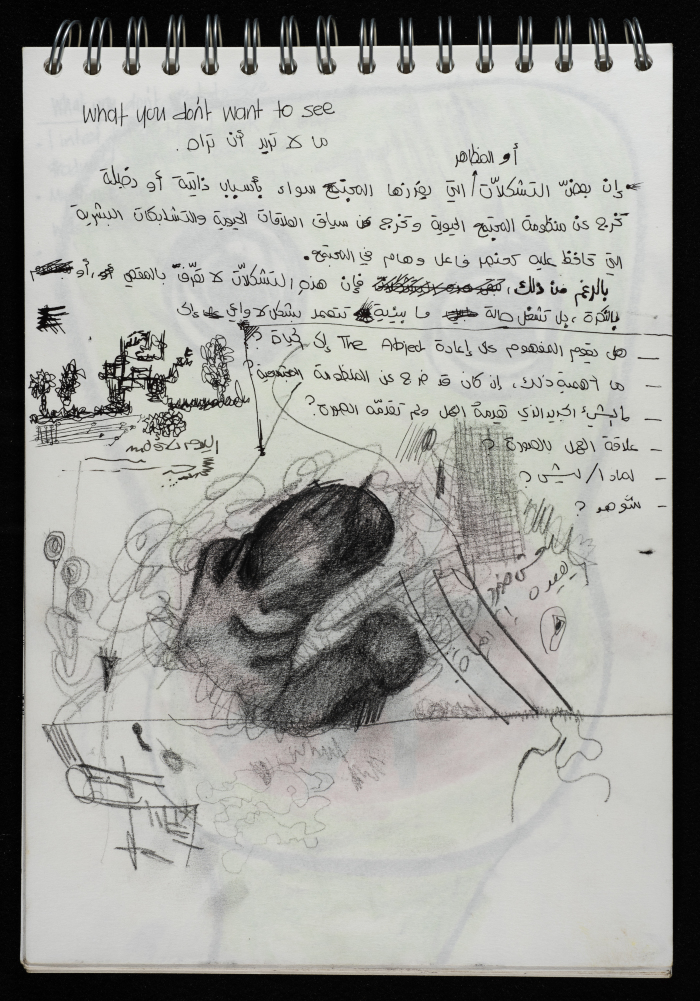 what you don't want to see
ما لا تريد أن تراه .
أو المظاهر
إن بعض التشكلات التي يفرزها المجتمع سواء بأسباب ذاتية أو دخيلة
تخرج عن منظومة المجتمع الحيوية وتخرج عن سياق العلاقات الحيوية والتشابكات البشرية
التي تحافظ عليه كعنصر فاعل وهام في المجتمع.
بالرغم من ذلك، فإن هذه التشكلات لا تفرق بالمعنى أو
بالفكرة، بل تشغل حالة ما بينية تنحصر بشكل لا واعي إلى
— هل يقوم المفهوم على إعادة The Abject إلى الحياة ؟
— ما أهمية ذلك، إن كان قد خرج عن المنظومة المجتمعية ؟
— ما الشيء الجديد الذي تقدمه العمل ولم تقدمه الصورة؟
— علاقة العمل بالصورة ؟
— لماذا / ليش ؟
— شو هد ؟